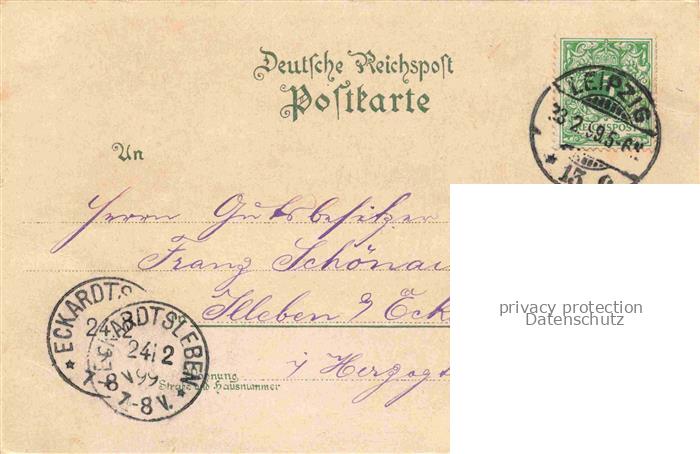 Deutsche Reichspost
Postkarte
An
LEIPZIG
5
REICHSPOST
13
Herrn Gutsbesitzer
Franz Schönau
Illeben b/ Eck
i/ Herzogt
ECKARDTS
24
7-8
ECKARDTSLEBEN
24 2
99
7-8 V.
Wohnung
Straße und Hausnummer
privacy protection
Datenschutz